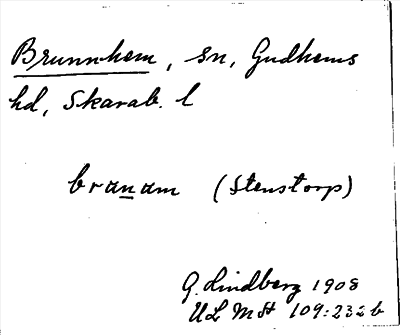 Brunnhem, sn, Gudhems
hd, Skarab. l
branam (Stenstorp)
G. Lindberg 1908
ULMA 109:232 b